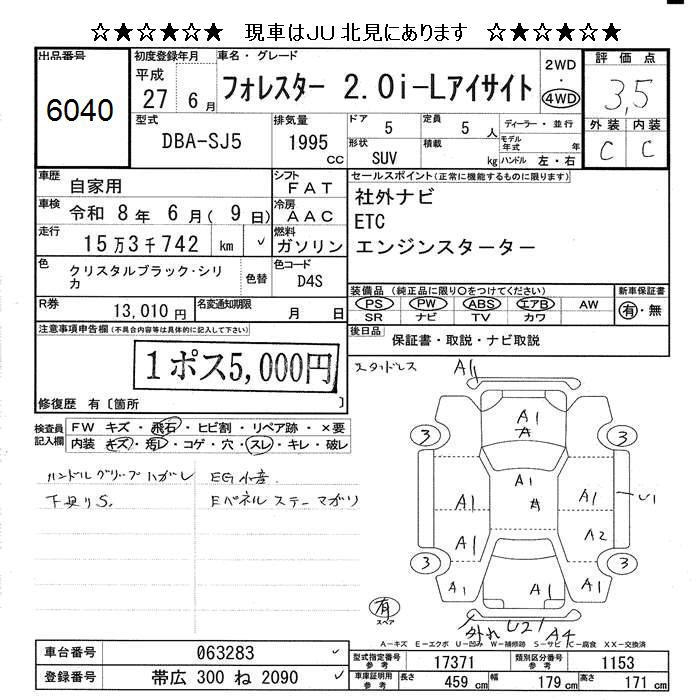 ☆★☆★☆★ 現車はJU北見にあります ☆★☆★☆★
出品番号
6040
初度登録年月
平成
27 6月
車名・グレード
フォレスター 2.0i-Lアイサイト
2WD
・
4WD
評価点
3,5
外装 内装
C C
型式
DBA-SJ5
排気量
1995
cc
ドア
5
定員
5 人
形状
SUV
積載
kg
ディーラー・並行
モデル年式 年
ハンドル 左・右
車歴
自家用
シフト
FAT
車検
令和 8年 6月( 9日)
冷房
AAC
走行
15万3千742 km ✓
燃料
ガソリン
色
クリスタルブラック・シリカ
色替
色コード
D4S
セールスポイント(正常に機能するものに限ります)
社外ナビ
ETC
エンジンスターター
装備品 (純正品に限り○をつけてください)
PS PW ABS エアB AW
SR ナビ TV カワ
新車保証書
有・無
R券
13,010円
名変通知期限
月 日
後日品
保証書・取説・ナビ取説
注意事項申告欄(不具合内容等は具体的に記入して下さい)
1ポス5,000円
修復歴 有〔箇所 〕
スタッドレス
検査員記入欄
FW キズ・飛石・ヒビ割・リペア跡・×要
内装 キズ・汚レ・コゲ・穴・スレ・キレ・破レ
ハンドルグリップハガレ
下廻りS.
EG水音
Eパネルステーマガリ
A1
A1
A
3 3
A1 A A1 U1
A1 A2
3 3
A1 A1 A1
有
スペア
外れ U21 A4
A-キズ E-エクボ U-凹み W-補修跡 S-サビ C-腐食 XX-交換済
車台番号
063283 ✓
登録番号
帯広 300 ね 2090 ✓
型式指定番号
参考
17371
類別区分番号
参考
1153
車庫証明用
参考
長さ 459 cm
幅 179 cm
高さ 171 cm